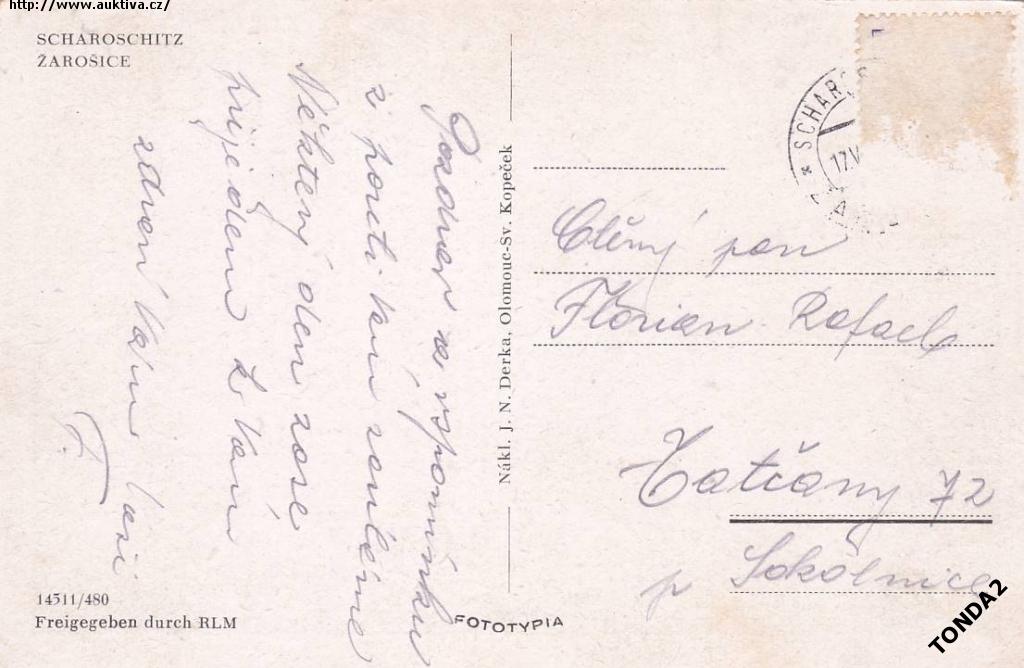 http://www.auktiva.cz/
SCHAROSCHITZ
ŽAROŠICE
Pozdrav ze vspomínku
z pouti Vám
Některý den zase
přijedem k Vám
zdraví Vám
F.
Nákl. J. N. Derka, Olomouc-Sv. Kopeček
* SCHARO
17.V
Ctěný pan
Florian Rafael
Tatčany 72
p Sokolnice
14511/480
Freigegeben durch RLM
FOTOTYPIA
TONDA2